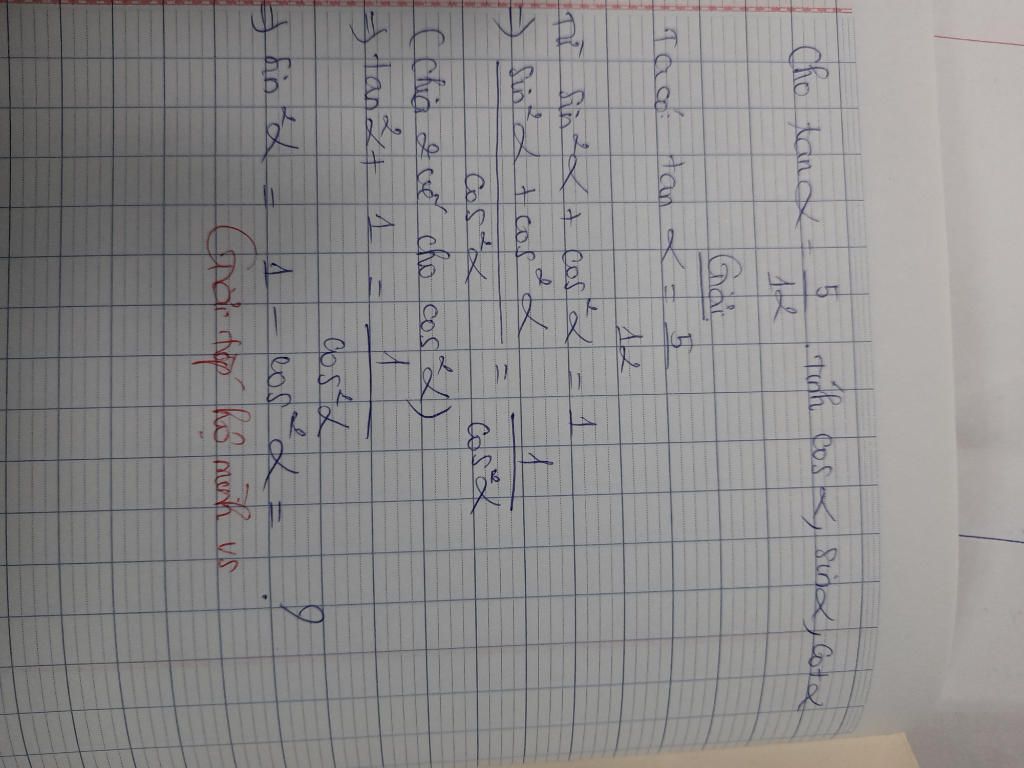 Cho tan α = 5/12. tính cos α, sin α, cot α
Giải
Ta có tan α = 5/12
Từ sin²α + cos²α = 1
=> (sin²α + cos²α)/cos²α = 1/cos²α
(chia 2 vế cho cos²α)
=> tan²α + 1 = 1/cos²α
=> sin²α = 1 - cos²α = ?
Giải tiếp hộ mình vs